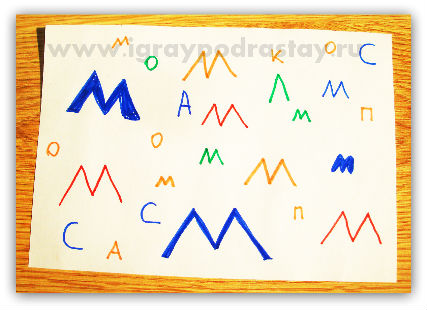 www.igraypodrastay.ru
М О М К О С
М А М Л М М П
О О М М М
М М С М П М
С А